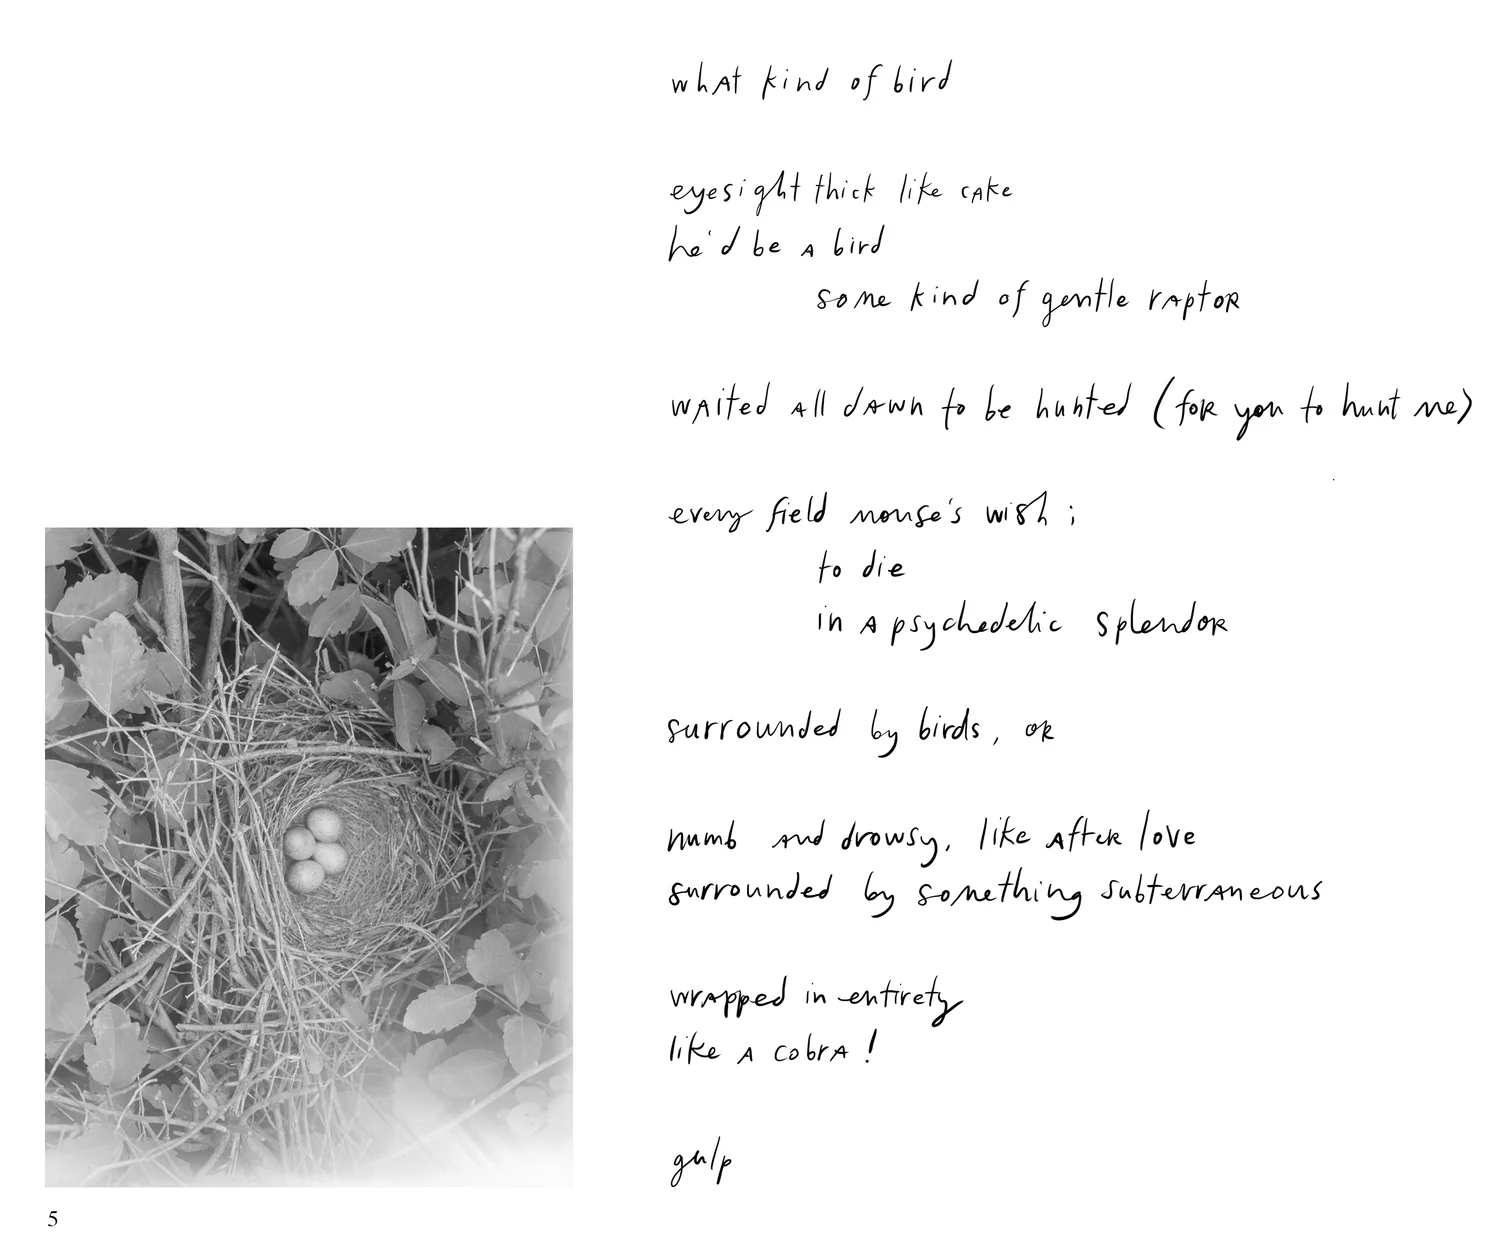 what kind of bird
eyesight thick like cake
he'd be a bird
some kind of gentle raptor
waited all dawn to be hunted (for you to hunt me)
every field mouse's wish;
to die
in a psychedelic splendor
surrounded by birds, or
numb and drowsy, like after love
surrounded by something subterraneous
wrapped in entirety
like a cobra!
gulp
5